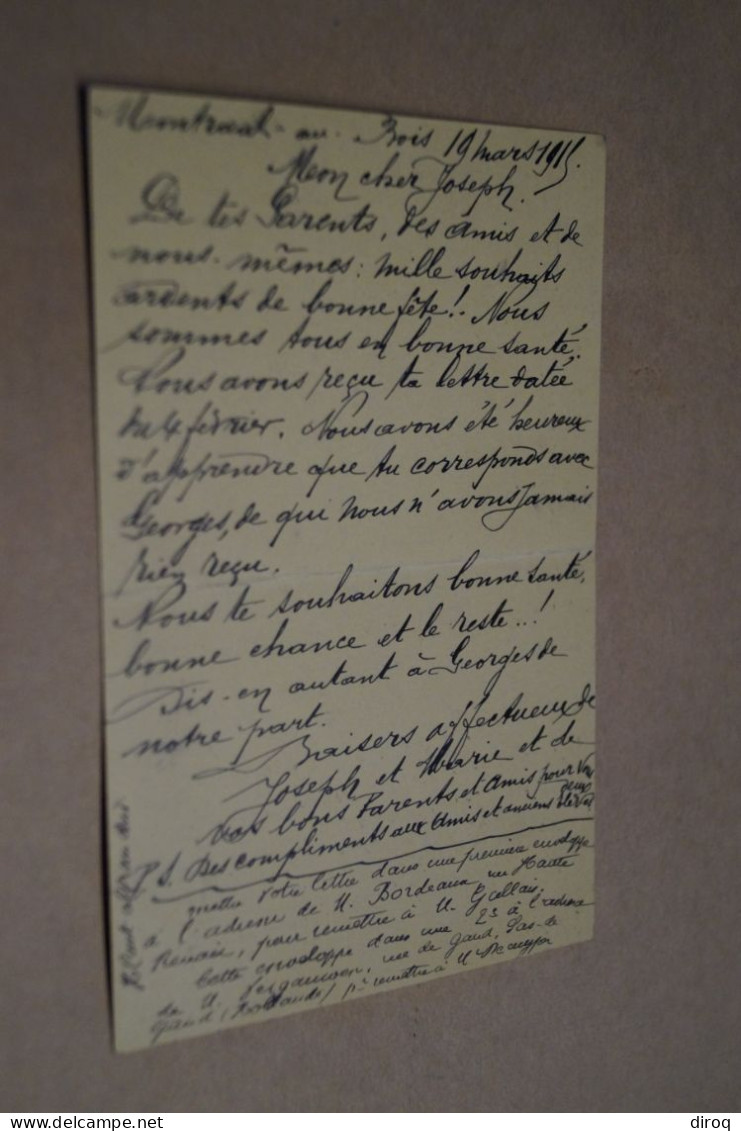 au Bois 19 mars 1915.
Mon cher Joseph.
De tes Parents, des Amis et de
nous-mêmes: mille souhaits
ardents de bonne fête!. Nous
sommes tous en bonne santé.
Nous avons reçu ta lettre datée
du 4 février. Nous avons été heureux
d'apprendre que tu corresponds avec
Georges, de qui nous n'avons jamais
rien reçu.
Nous te souhaitons bonne santé,
bonne chance et le reste...!
Dis-en autant à Georges de
notre part.
Baisers affectueux de
Joseph et Marie et de
vos bons Parents et Amis pour vous
deux
P.S. Des compliments aux Amis et anciens élèves
mettre votre lettre dans une première enveloppe
à l'adresse de M. Bordeaux, rue Haute
Renaix, pour remettre à M. Gallais.
Cette enveloppe dans une 2e à l'adresse
de M. rue de Gand, Sas-de-
Gand (Hollande) pr remettre à M.
diroq